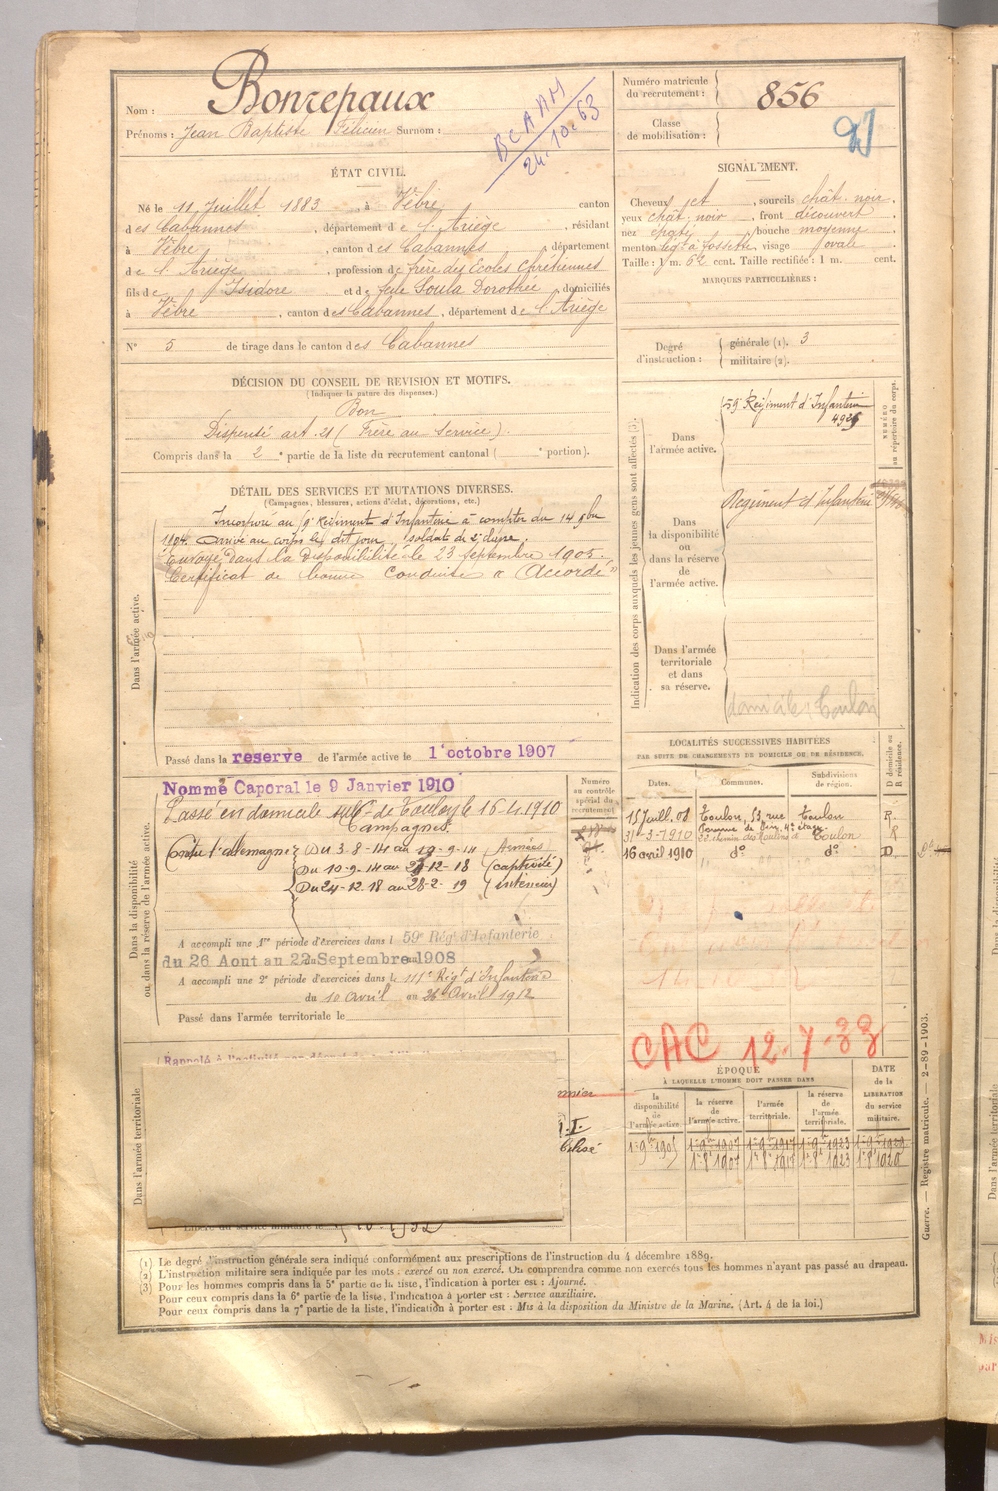 Nom : Bonrepaux
Prénoms : Jean Baptiste Félicien Surnom :
BCAAM
24.10.63
Numéro matricule
du recrutement : 856
Classe
de mobilisation :
ÉTAT CIVIL.
Né le 11 Juillet 1883 à Vèbre canton
des Cabannes, département de l'Ariège, résidant
à Vèbre, canton des Cabannes, département
de l'Ariège, profession de frère des Ecoles Chrétiennes
fils de Isidore et de feue Soula Dorothée, domiciliés
à Vèbre, canton des Cabannes, département de l'Ariège
N° 5 de tirage dans le canton des Cabannes
SIGNALEMENT.
Cheveux et, sourcils chât. noir.
yeux chât. noir, front découvert
nez, bouche moyenne
menton à fossette, visage ovale
Taille : 1 m. 62 cent. Taille rectifiée : 1 m. cent.
MARQUES PARTICULIÈRES :
Degré
d'instruction :
générale (1). 3
militaire (2).
DÉCISION DU CONSEIL DE REVISION ET MOTIFS.
(Indiquer la nature des dispenses.)
Bon
Dispensé art. 21 (Frère au Service).
Compris dans la 2e partie de la liste du recrutement cantonal ( e portion).
DÉTAIL DES SERVICES ET MUTATIONS DIVERSES.
(Campagnes, blessures, actions d'éclat, décorations, etc.)
Dans l'armée active.
Incorporé au 9e Régiment d'Infanterie à compter du 14 9bre
1904. Arrivé au corps le dit jour, soldat de 2e classe.
Envoyé dans la disponibilité le 23 septembre 1905.
Certificat de bonne conduite « Accordé »
Passé dans la reserve de l'armée active le 1er octobre 1907
Indication des corps auxquels les jeunes gens sont affectés (3).
NUMÉRO
au répertoire du corps.
Dans
l'armée active.
59e Régiment d'Infanterie
Dans
la disponibilité
ou
dans la réserve
de
l'armée active.
Régiment d'Infanterie
Dans l'armée
territoriale
et dans
sa réserve.
domicile Toulon
Dans la disponibilité
ou dans la réserve de l'armée active.
Nommé Caporal le 9 Janvier 1910
Passé en domicile de Toulon le 16.4.1910
Campagnes.
Contre l'Allemagne Du 3-8-14 au 19-9-14 (Armées)
Du 10-9-14 au -12-18 (captivité)
Du 24-12-18 au 28-2-19 (intérieur)
A accompli une 1re période d'exercices dans l 59e Régt d'Infanterie
du 26 Aout au 22 Septembre 1908
A accompli une 2e période d'exercices dans le 111e Régt d'Infanterie
du 10 avril au 26 Avril 1912
Passé dans l'armée territoriale le
Numéro
au contrôle
spécial du
recrutement
LOCALITÉS SUCCESSIVES HABITÉES
PAR SUITE DE CHANGEMENTS DE DOMICILE OU DE RÉSIDENCE.
Dates. Communes. Subdivisions
de région.
D domicile ou
R résidence.
15 Juill. 08 Toulon, 53, rue Toulon R.
31-3-1910 Toulon R
16 avril 1910 do do D
CAC 12-7-33
Dans l'armée territoriale
Rappelé à l'activité
Libéré du service militaire le
ÉPOQUE
À LAQUELLE L'HOMME DOIT PASSER DANS
DATE
de la
LIBÉRATION
du service
militaire.
la
disponibilité
de
l'armée active.
la réserve
de
l'armée active.
l'armée
territoriale.
la réserve
de
l'armée
territoriale.
Guerre. — Registre matricule. — 2-89-1903.
(1) Le degré d'instruction générale sera indiqué conformément aux prescriptions de l'instruction du 4 décembre 1889.
(2) L'instruction militaire sera indiquée par les mots : exercé ou non exercé. On comprendra comme non exercés tous les hommes n'ayant pas passé au drapeau.
(3) Pour les hommes compris dans la 5e partie de la liste, l'indication à porter est : Ajourné.
Pour ceux compris dans la 6e partie de la liste, l'indication à porter est : Service auxiliaire.
Pour ceux compris dans la 7e partie de la liste, l'indication à porter est : Mis à la disposition du Ministre de la Marine. (Art. 4 de la loi.)